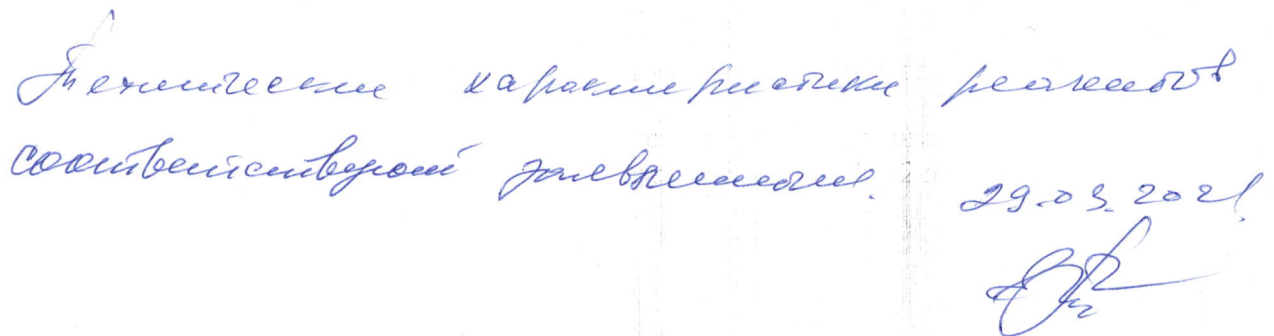 Технические характеристики реагентов
соответствуют заявленным. 29.03.2021.